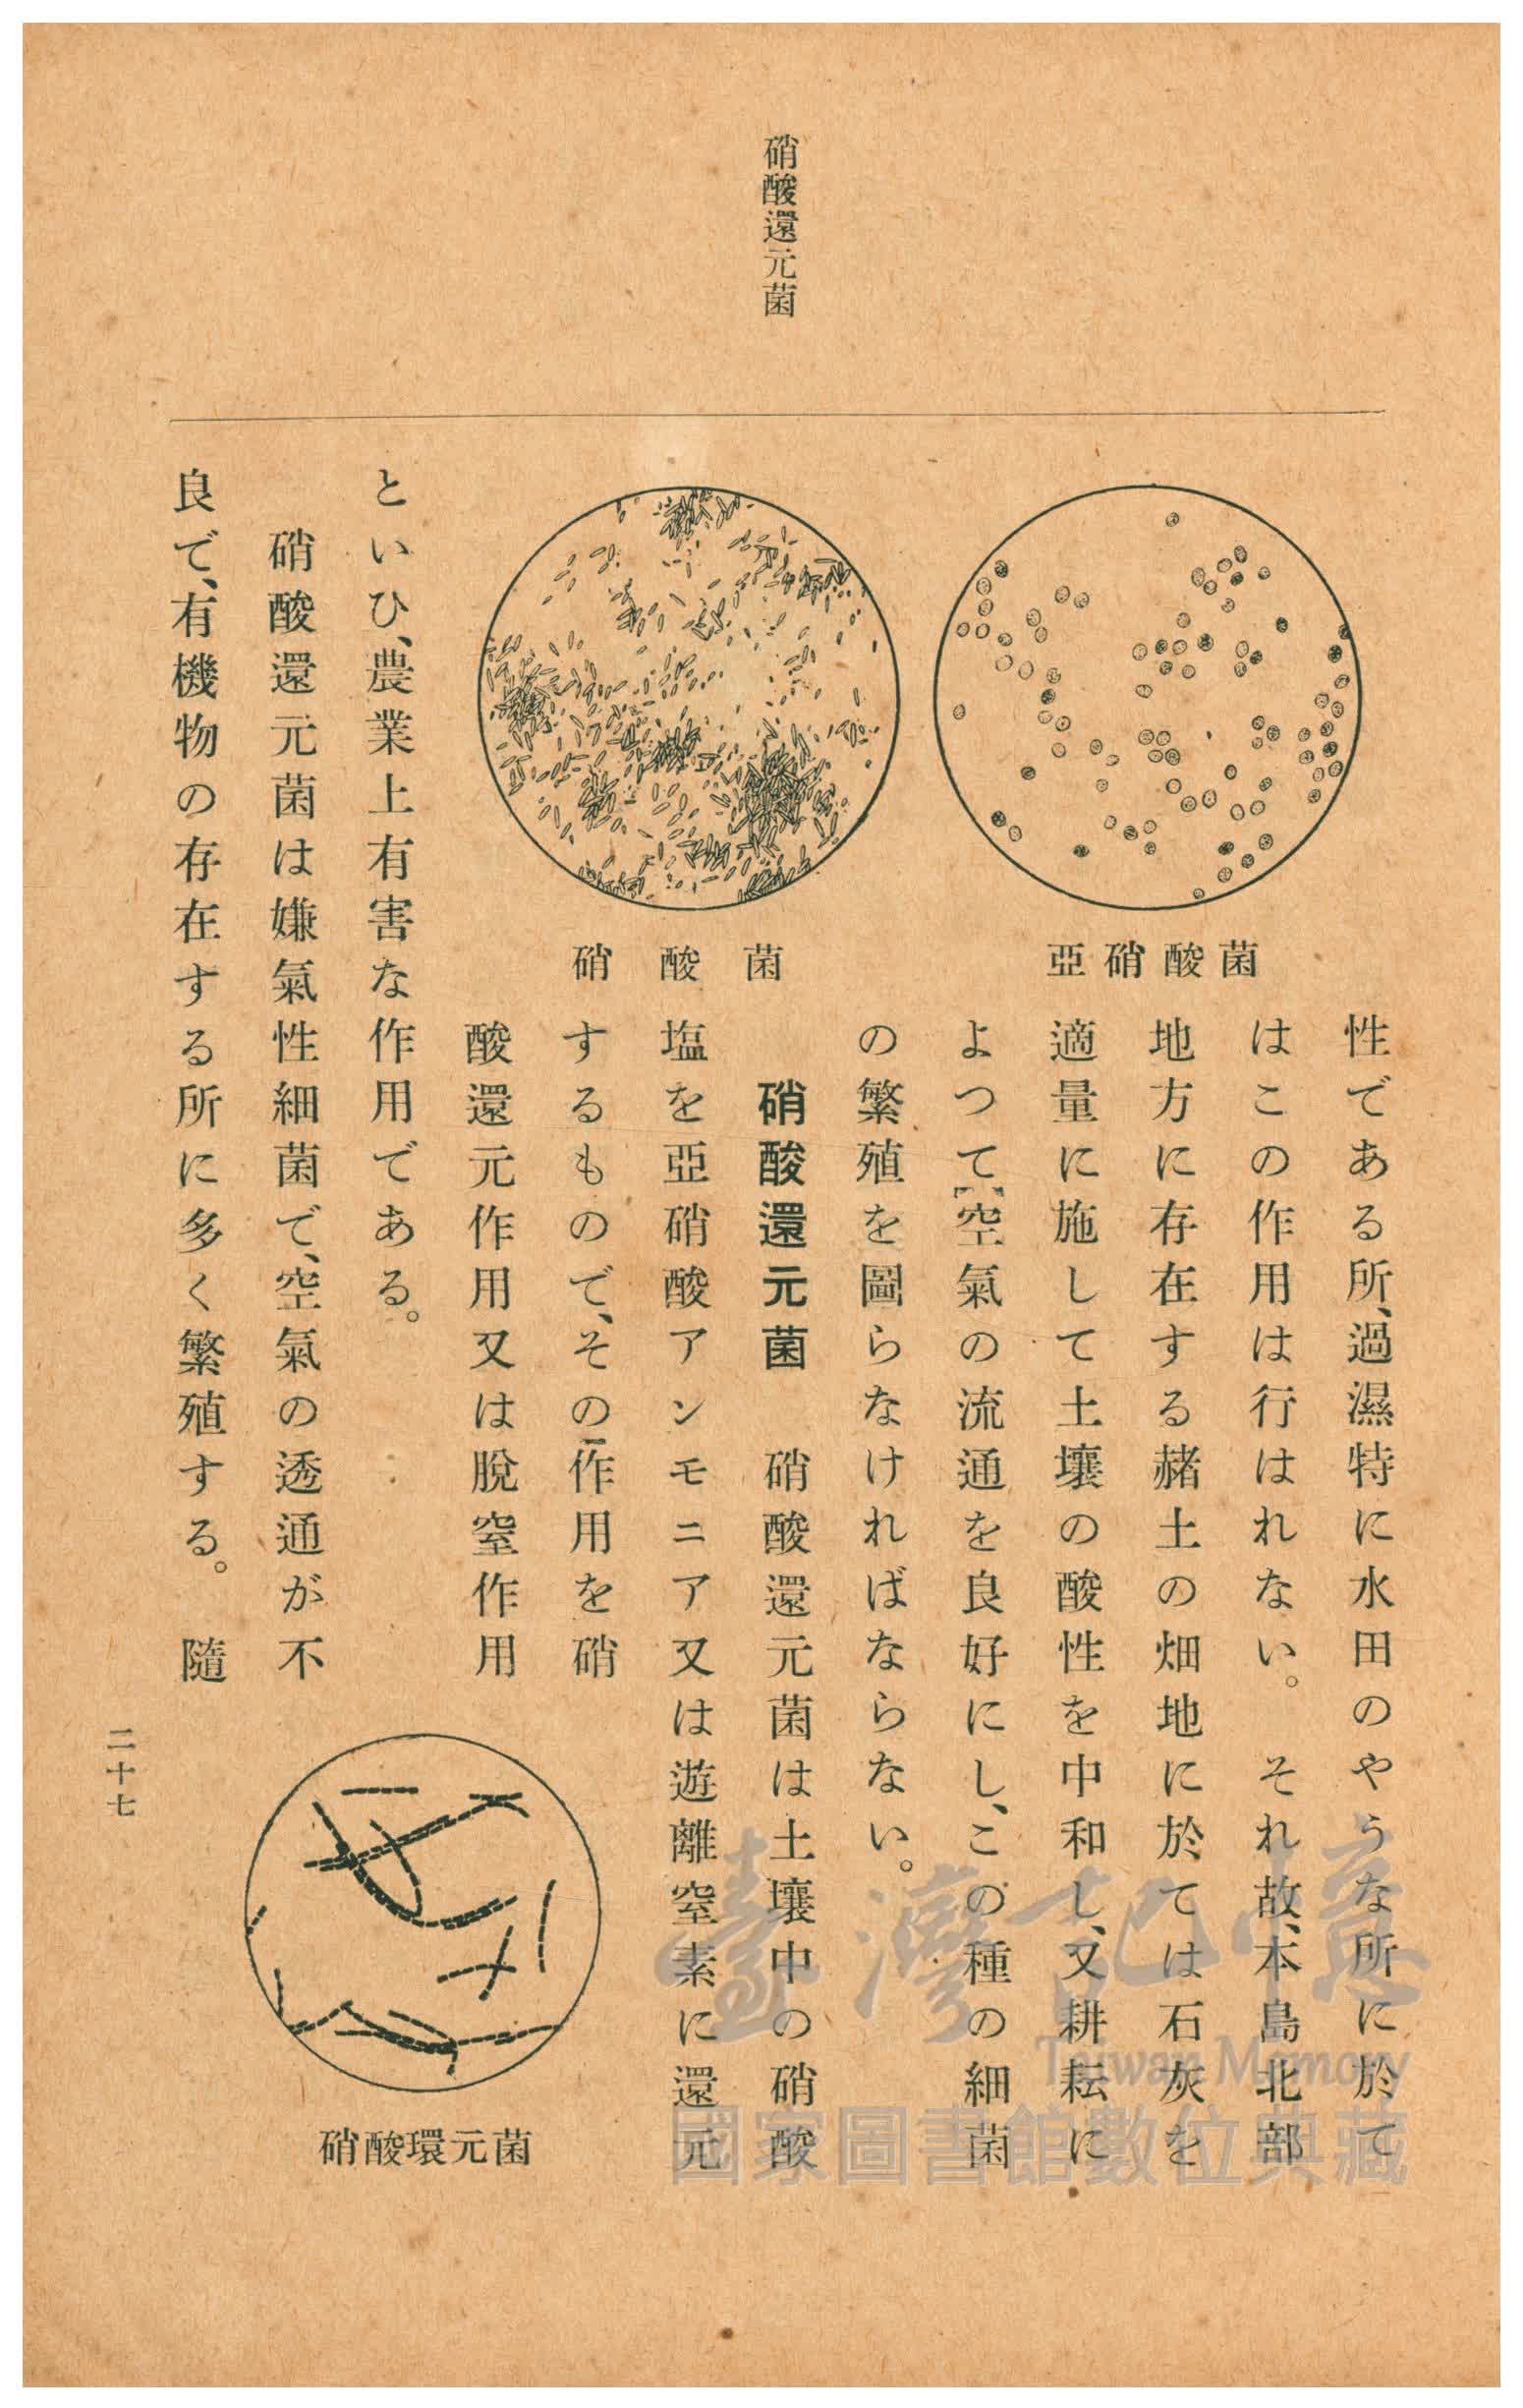 硝酸還元菌
亞硝酸菌
硝酸菌
性である所、過濕特に水田のやうな所に於て
はこの作用は行はれない。それ故、本島北部
地方に存在する赭土の畑地に於ては石灰を
適量に施して土壤の酸性を中和し、又耕耘に
よつて空氣の流通を良好にし、この種の細菌
の繁殖を圖らなければならない。
硝酸還元菌　硝酸還元菌は土壤中の硝酸
塩を亞硝酸アンモニア又は遊離窒素に還元
するもので、その作用を硝
酸還元作用又は脫窒作用
といひ、農業上有害な作用である。
硝酸還元菌は嫌氣性細菌で、空氣の透通が不
良で、有機物の存在する所に多く繁殖する。隨
硝酸環元菌
二十七
臺灣記憶
Taiwan Memory
國家圖書館數位典藏